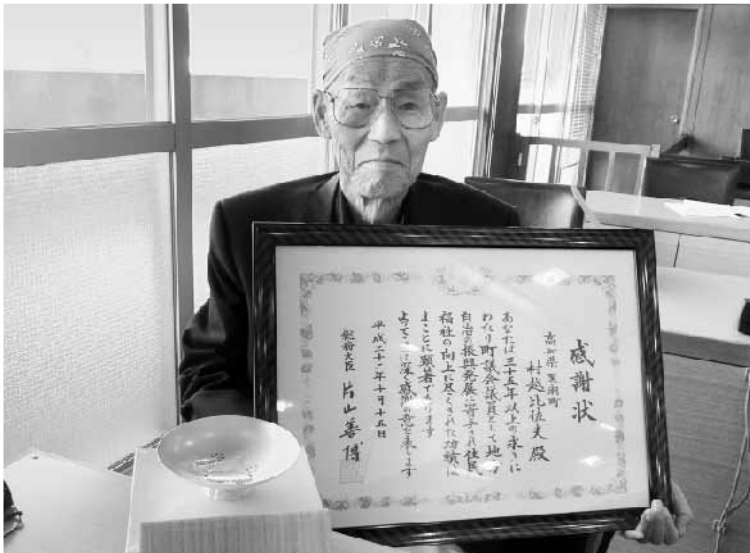 感謝状
高知県 黒潮町
村越比佐夫 殿
あなたは三十五年以上の永きに
わたり町議会議員として地方
自治の振興発展に寄与され住民
福祉の向上に尽くされた功績は
まことに顕著であります
よってここに深く感謝の意を表します
平成二十二年十月十五日
総務大臣 片山善博